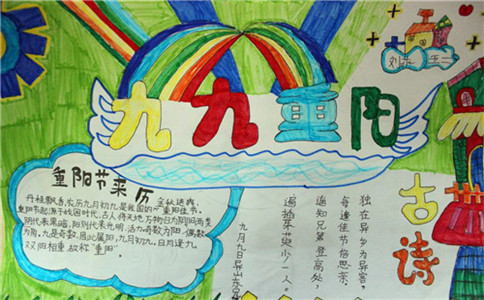 九九重阳
重阳节来历
金秋送爽,
丹桂飘香,农历九月初九是我国的"重阳佳节,
重阳节起源于战国时代,古人将天地万物归为阴阳两类
阴代表黑暗,阳则代表光明,活力奇数为阳,偶数
为阴,九是奇数,因此属阳,九月初九,日月逢九
双阳相重,故称"重阳"。
古诗
独在异乡为异客,
每逢佳节倍思亲。
遥知兄弟登高处,
遍插茱萸少一人。
九月九日异山东